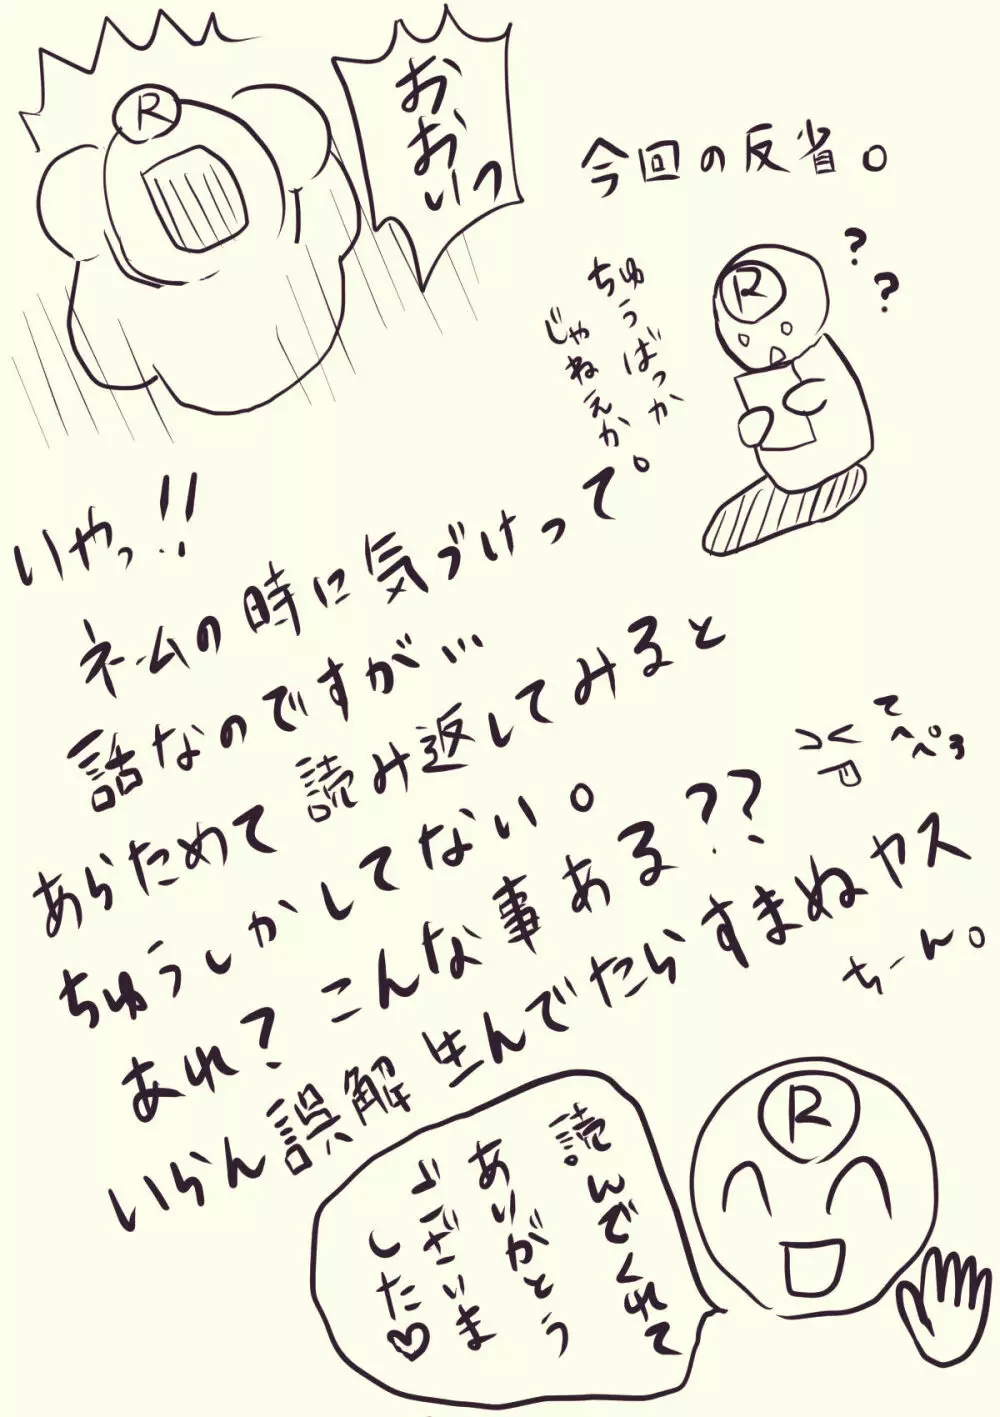 今回の反省。
R
??
ちゅうばっか
じゃねぇか。
おおいっ
R
いやっ!!
ネームの時に気づけって。
話なのですが…
あらためて読み返してみると
ちゅうしかしてない。
あれ?こんな事ある??
てへぺろ
いらん誤解生んでたらすまぬヤス
ちーん。
R
読んでくれて
ありがとう
ございま
した♡